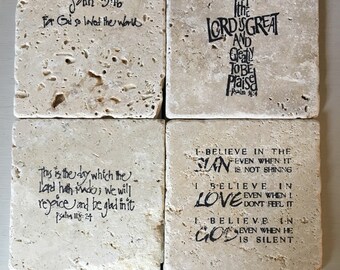 John 3:16
For God so loved the world
the
LORD IS GREAT
AND
Greatly
TO BE
Praised
This is the day which the
Lord hath made; we will
rejoice and be glad in it
Psalm 118:24
I BELIEVE IN THE
SUN EVEN WHEN IT
IS NOT SHINING
I BELIEVE IN
LOVE EVEN WHEN I
DON'T FEEL IT
I BELIEVE IN
GOD EVEN WHEN HE
IS SILENT